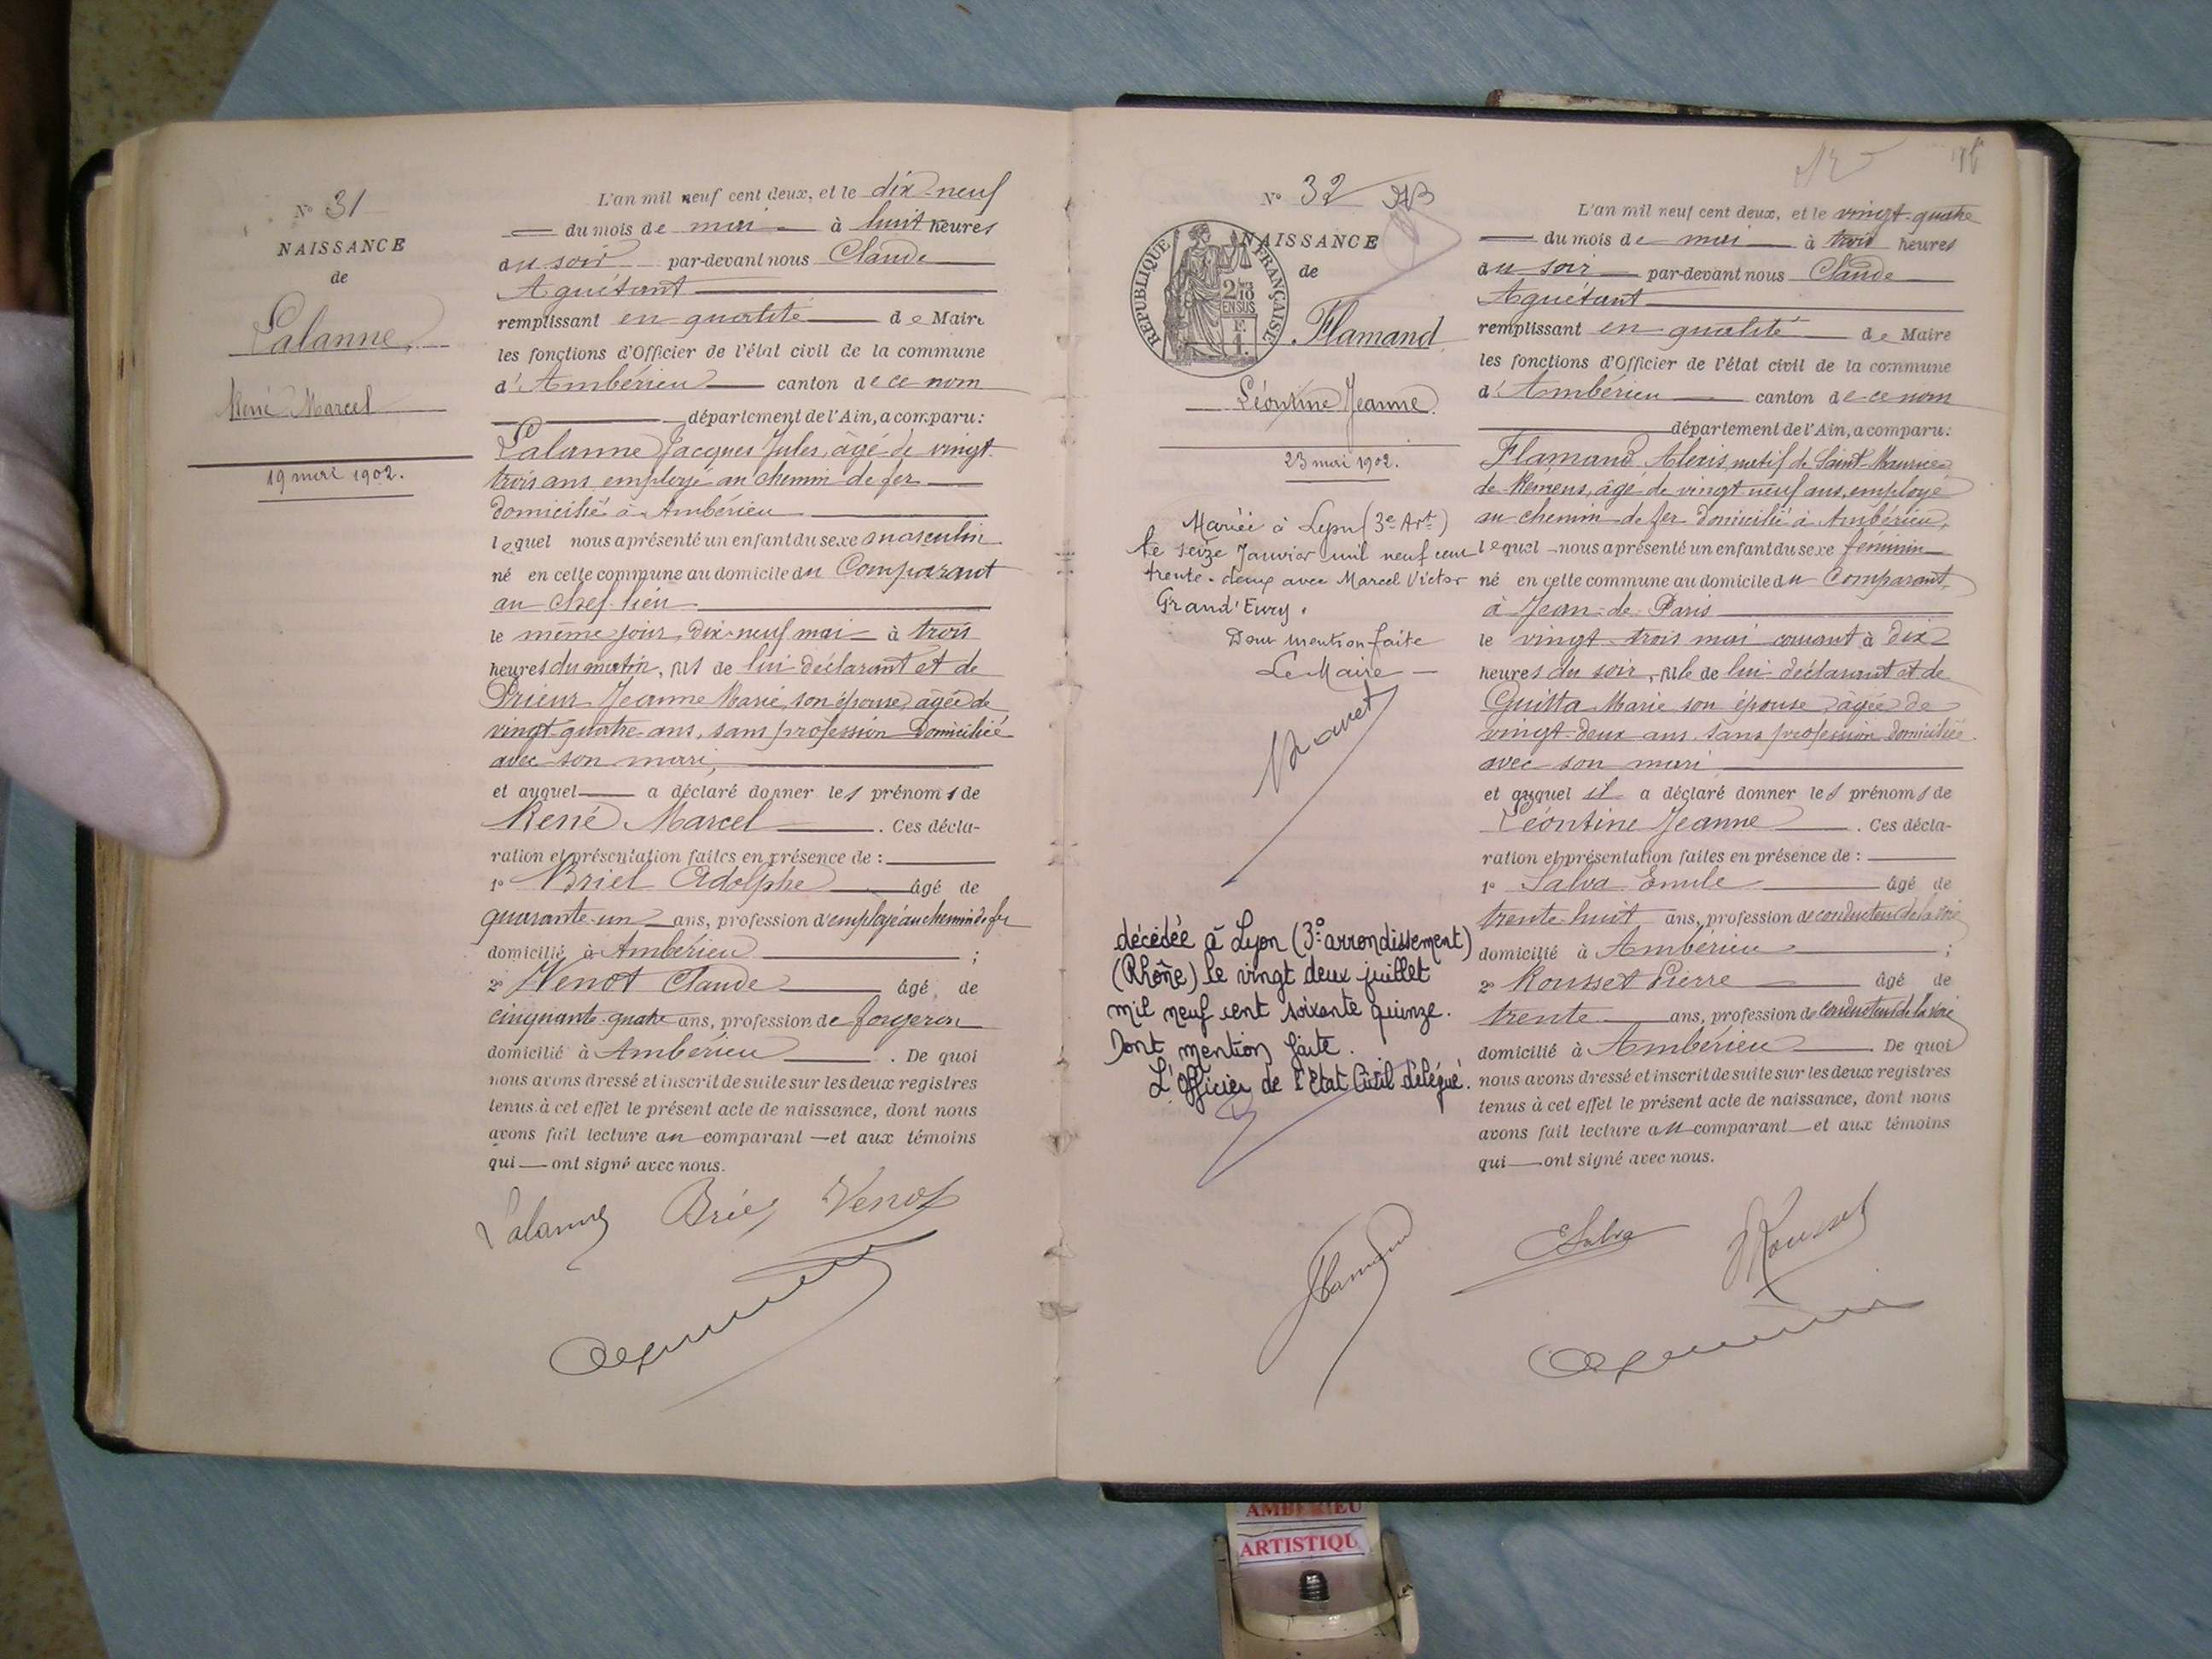 N° 31
NAISSANCE
de
Lalanne
René Marcel
19 mai 1902.
L'an mil neuf cent deux, et le dix-neuf
du mois de mai à huit heures
du soir par-devant nous Claude
Aguétant
remplissant en qualité de Maire
les fonctions d'Officier de l'état civil de la commune
d'Ambérieu canton de ce nom
département de l'Ain, a comparu:
Lalanne Jacques Jules, âgé de vingt
trois ans, employé au chemin de fer
domicilié à Ambérieu
lequel nous a présenté un enfant du sexe masculin
né en cette commune au domicile du Comparant
au chef-lieu
le même jour, dix-neuf mai à trois
heures du matin, fils de lui déclarant et de
Prieur Jeanne Marie, son épouse, âgée de
vingt-quatre ans, sans profession Domiciliée
avec son mari,
et auquel a déclaré donner les prénoms de
René Marcel. Ces décla-
ration et présentation faites en présence de :
1° Briel Adolphe âgé de
quarante-un ans, profession d'employé au chemin de fer
domicilié à Ambérieu ;
2° Venot Claude âgé de
cinquante-quatre ans, profession de forgeron
domicilié à Ambérieu. De quoi
nous avons dressé et inscrit de suite sur les deux registres
tenus à cet effet le présent acte de naissance, dont nous
avons fait lecture au comparant et aux témoins
qui ont signé avec nous.
Lalanne Briel Venot
N° 32
NAISSANCE
de
REPUBLIQUE FRANÇAISE
2/10
EN SUS
F.
1.
Flamand
Léontine Jeanne
23 mai 1902.
Mariée à Lyon (3e Art)
le seize Janvier mil neuf cent
trente-deux avec Marcel Victor
Grand'Eury.
Dont mention faite
Le Maire
décédée à Lyon (3° arrondissement)
(Rhône) le vingt deux juillet
mil neuf cent soixante quinze.
Dont mention faite.
L'Officier de l'Etat Civil délégué.
L'an mil neuf cent deux, et le vingt-quatre
du mois de mai à trois heures
du soir par-devant nous Claude
Aguétant
remplissant en qualité de Maire
les fonctions d'Officier de l'état civil de la commune
d'Ambérieu canton de ce nom
département de l'Ain, a comparu:
Flamand Alexis, natif de Saint-Maurice
de Rémens, âgé de vingt-neuf ans, employé
au chemin de fer domicilié à Ambérieu,
lequel nous a présenté un enfant du sexe féminin
né en cette commune au domicile du Comparant,
à Jean-de-Paris
le vingt-trois mai courant à dix
heures du soir, fille de lui déclarant et de
Guitta Marie son épouse, âgée de
vingt-deux ans, sans profession domiciliée
avec son mari
et auquel il a déclaré donner les prénoms de
Léontine Jeanne. Ces décla-
ration et présentation faites en présence de :
1° Salva Emile âgé de
trente-huit ans, profession de conducteur de la voie
domicilié à Ambérieu ;
2° Rousset Pierre âgé de
trente ans, profession de conducteur de la voie
domicilié à Ambérieu. De quoi
nous avons dressé et inscrit de suite sur les deux registres
tenus à cet effet le présent acte de naissance, dont nous
avons fait lecture au comparant et aux témoins
qui ont signé avec nous.
Flamand Salva Rousset
AMBERIEU
ARTISTIQU